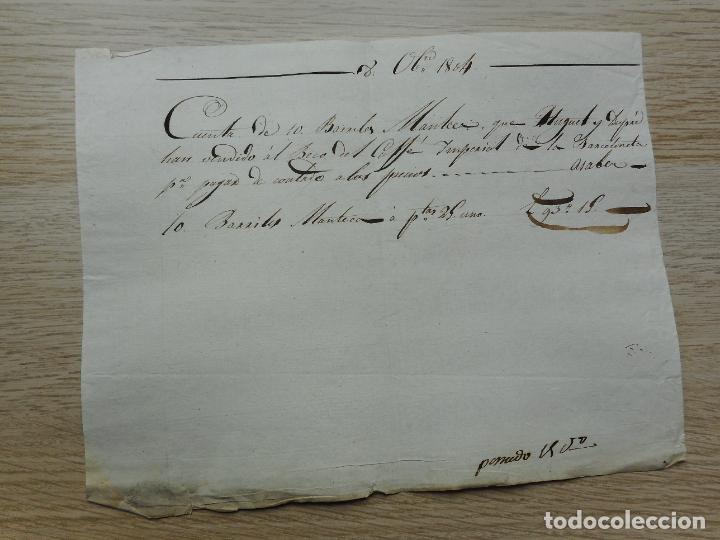 8. Obre 1804
Cuenta de 10. Barriles Manteca, que Huguet y
han vendido âl Beco del Caffé Imperial de la Barceloneta
pa. pagar de contado a los precios - - - - - - - - asaber
10. Barriles Manteca â ptas 25 uno. £ 93" 15.
todocoleccion
todocoleccion.net